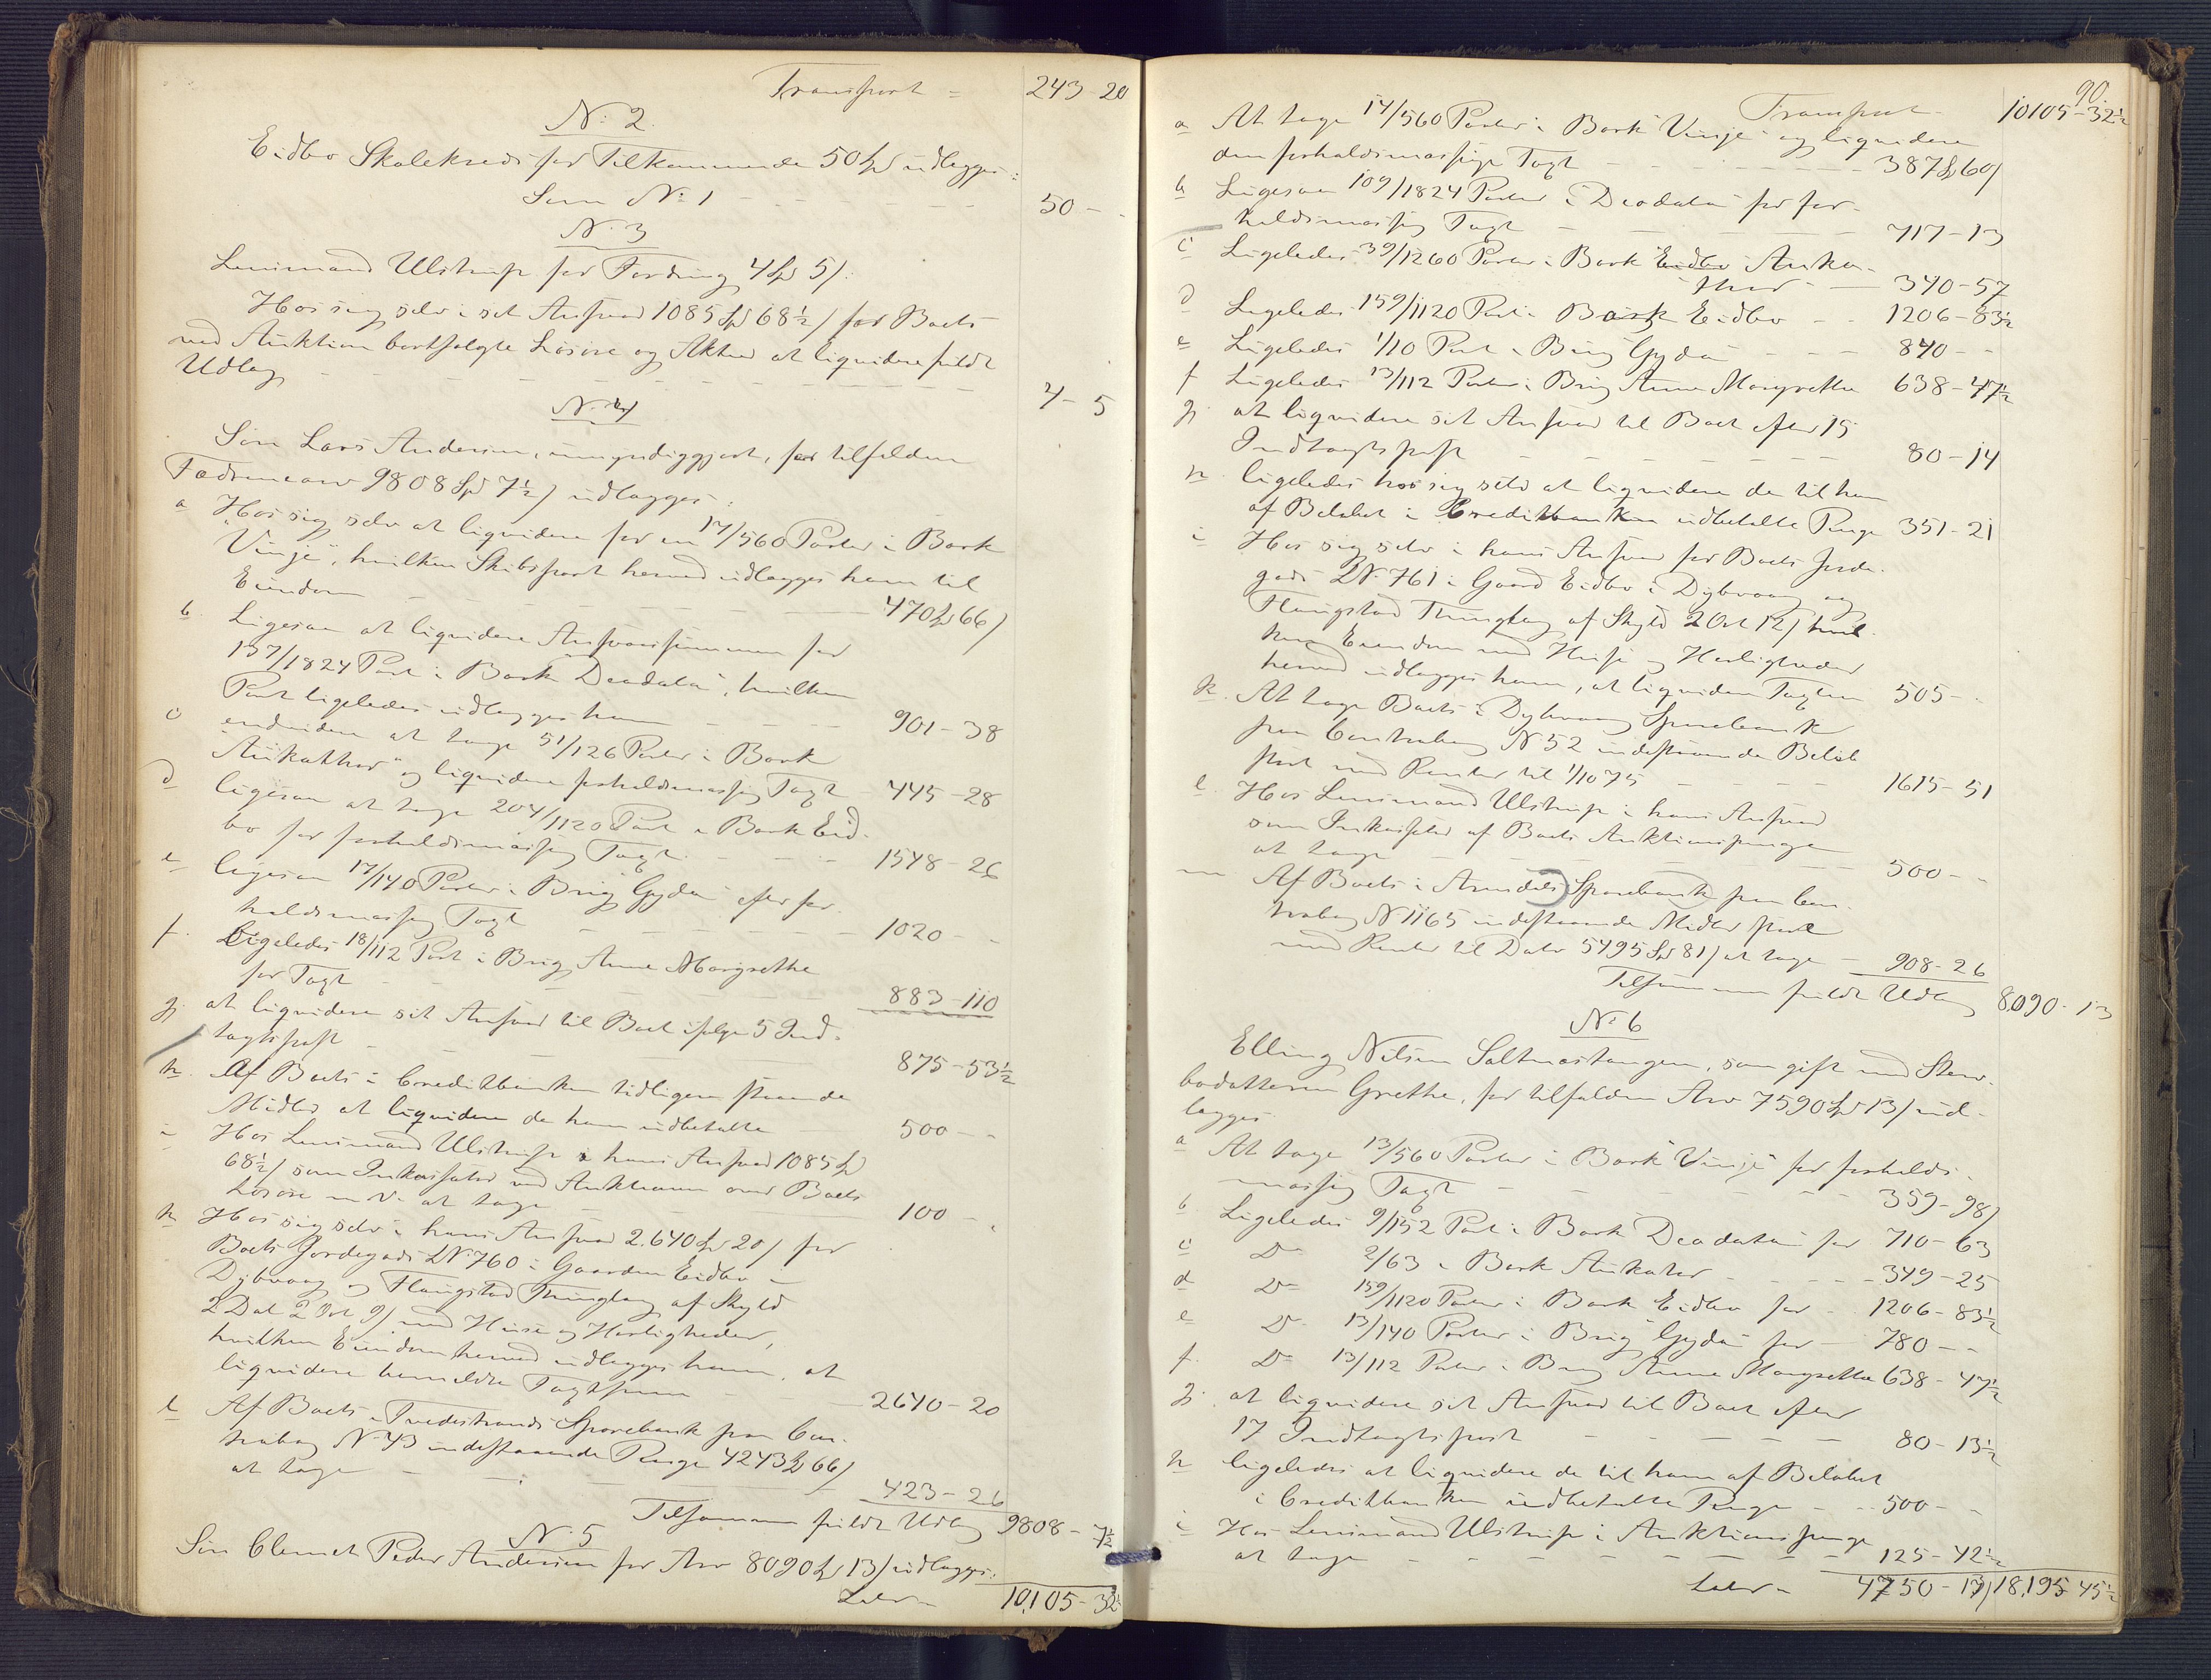 Transport = 243-20
N: 2.
Eidbo Skolekreds for Tilkommende 50 Spd udlægges:
Som N: 1 - - - - - - 50 - -
N. 3
Lensmand Ulstrup for Fordring 4 Spd 5/:
Hos sig selv i sit Ansvar 1085 Spd 68½/ for Boets
ved Auktion bortsolgte Løsøre og Aktier at liquidere fuldt
Udlæg - - - - - - 4 - 5
N. 4
Søn Lars Andersen, umyndiggjort, for tilfalden
Fædrenearv 9808 Spd 7½/ udlægges:
a Hos sig selv at liquidere for en 17/560 Parter i Bark
"Vinje", hvilken Skibspart hermed udlægges ham til
Eiendom - - - 470 Spd 66/
b. Ligesaa at liquidere Ansvarssummen for
137/1824 Part i Bark "Deodata", hvilken
Part ligeledes udlægges ham - - - 901-38
c endvidere at tage 51/126 Parter i Bark
"Aukathor" og liquidere forholdsmæssig Taxt - 445-28
d ligesaa at tage 204/1120 Part i Bark Eid-
bo for forholdsmæssig Taxt. - - - 1548-26
e ligesaa 17/140 Parter i Brig "Gyda" efter for-
holdsmæssig Taxt - - - 1020 - -
f. Ligeledes 18/112 Part i Brig Anne Margrethe
for Taxt - - - 883-110
g. at liquidere sit Ansvar til Boet ifølge 5 Ind-
tægtspost - - - 875-53½
h. Af Boets i Creditbanken tidligere staaende
Midler at liquidere de ham udbetalte - 500 - -
i Hos Lensmand Ulstrup i hans Ansvar 1085 Spd
68½/ som Inkassator ved Auktionen over Boets
Løsøre m. v. at tage - - - 100 - -
k Hos sig selv i hans Ansvar 2.640 Spd 20/ for
Boets Jordegods LN. 760 i Gaarden Eidbo i
Dybvaag og Flangstad Thinglag af Skyld
2 Dal 2 Ort 9/ med Huse og Herligheder,
hvilken Eiendom hermed udlægges ham, at
liquidere bemeldte Taxtsum - - - 2640-20
l Af Boets i Tvedestrands Sparebank paa Con-
trabog N. 43 indestaaende Penge 4243 Spd 66/
at tage - - - 423-26
Tilsammen fuldt Udlæg 9808-7½
N. 5
Søn Clemet Peder Andersen for Arv 8090 Spd 13/ udlægges:
Later - 10,105-32½
90.
Transport 10105-32½
a At tage 14/560 Parter i Bark "Vinje" og liquidere
den forholdsmæssige Taxt - - - 387 Spd 60/
b Ligesaa 109/1824 Parter i "Deodata" for for-
holdsmæssig Taxt - - - 717-13
c Ligeledes 39/1260 Parter i Bark Eidbo Auka-
thor - 340-57
d Ligeledes 159/1120 Part i Bark Eidbo - - 1206-83½
e Ligeledes 1/10 Part i Brig "Gyda" - - - 840 - -
f Ligeledes 13/112 Parter i Brig Anne Margrethe 638-47½
g. at liquidere sit Ansvar til Boet efter 15
Indtægtspost - - - 80-14
h ligeledes hos sig selv at liquidere de til ham
af Beløbet i Creditbanken udbetalte Penge 351-21
i Hos sig selv i hans Ansvar for Boets Jorde-
gods LN. 761 i Gaard Eidbo i Dybvaag og
Flangstad Thinglag af Skyld 2 Ort 12/ hvil-
ken Eiendom med Huse og Herligheder
hermed udlægges ham, at liquidere Taxten 505 - -
k. At tage Boets i Dybvaag Sparebank
paa Contrabog N 52 indestaaende Beløb
stort med Renter til 1/10 75 - - - 1615-51
l. Hos Lensmand Ulstrup i hans Ansvar
som Inkassator af Boets Auktionspenge
at tage - - - 500 - -
m Af Boets i Arendals Sparebank paa Con-
trabog N 1165 indestaaende Midler stort
med Renter til Dato 5495 Spd 81/ at tage - 908-26
Tilsammen fuldt Udlæg 8,090-13
N: 6
Elling Nilsen Saltmastangen, som gift med Sterv-
bodatteren Grethe, for tilfalden Arv 7590 Spd 13/ ud-
lægges
a At tage 13/560 Parter i Bark "Vinje" for forholds-
mæssig Taxt - - - 359-98/
b Ligeledes 9/152 Part i Bark Deodata for 710-63
c Do 2/63 i Bark Aukator - - - 349-25
d Do 159/1120 Parter i Bark Eidbo for - 1206-83½
e Do 13/140 Parter i Brig "Gyda" for - 780 - -
f. Do 13/112 Parter i Brig Anne Margrethe 638-47½
g. at liquidere sit Ansvar til Boet efter
17 Indtægtspost - - - 80-13½
h ligeledes at liquidere de til ham af Beløbet
i Creditbanken udbetalte Penge - - 500 - -
i Hos Lensmand Ulstrup i Auktionspenge
at tage - - - 125-42½
Later - 4750-13/ 18,195-45½